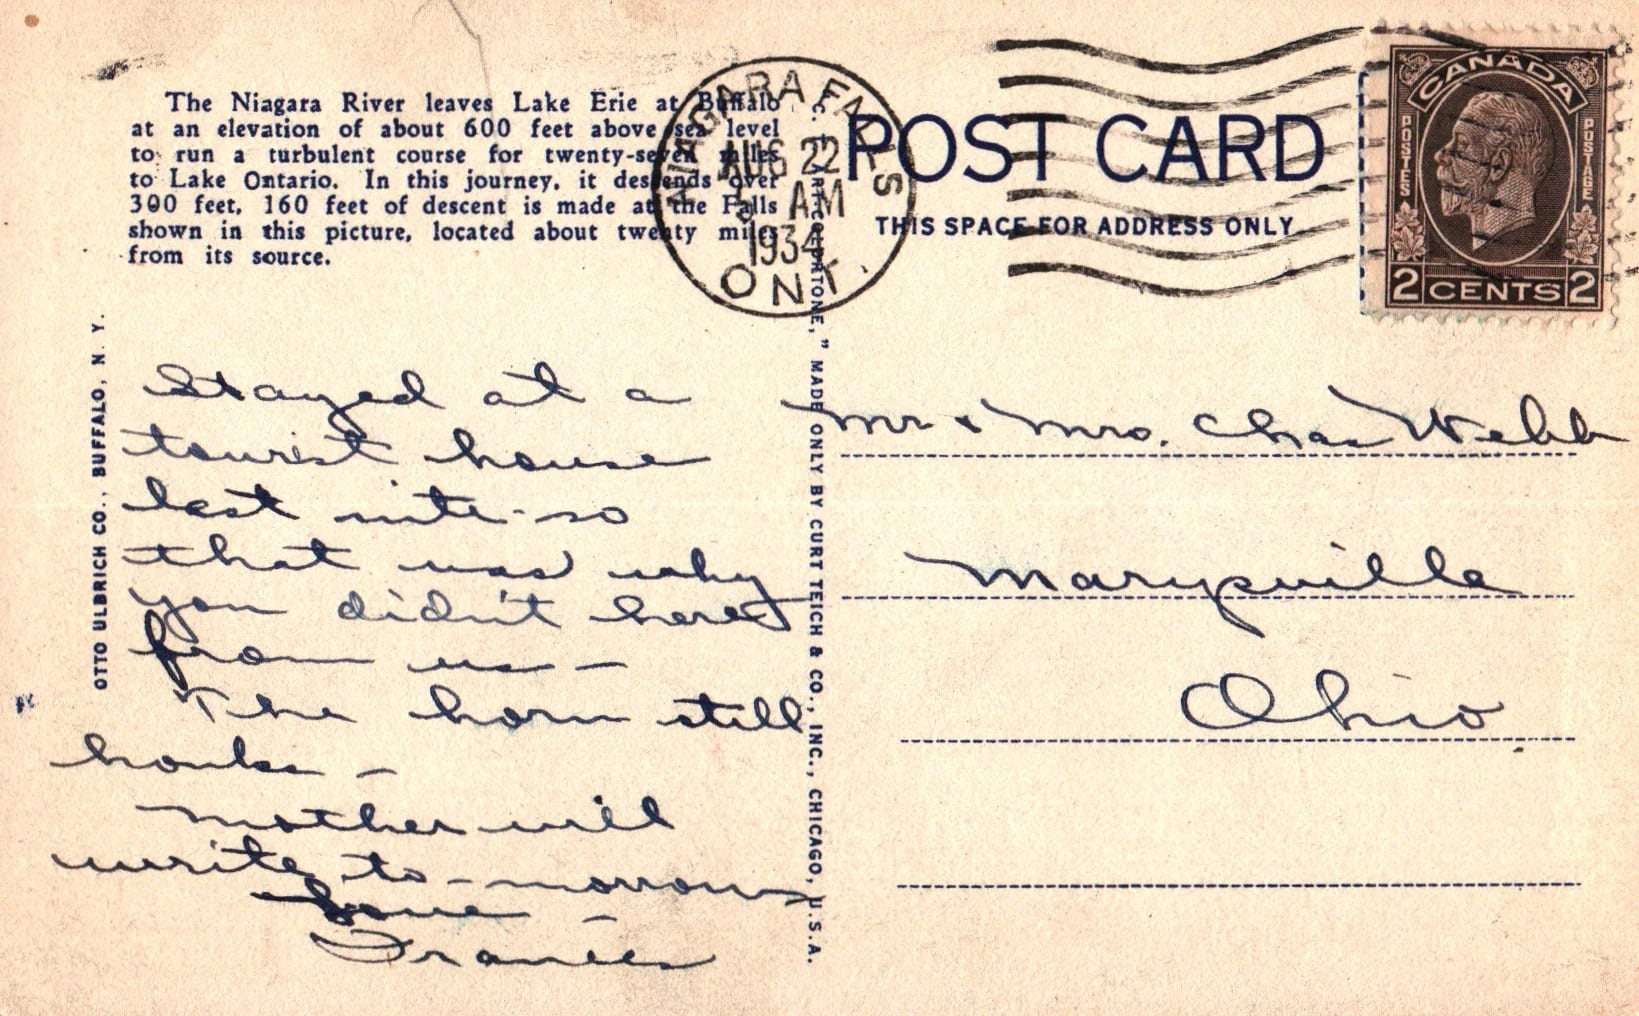 The Niagara River leaves Lake Erie at Buffalo
at an elevation of about 600 feet above sea level
to run a turbulent course for twenty-seven miles
to Lake Ontario. In this journey, it descends over
300 feet, 160 feet of descent is made at the Falls
shown in this picture, located about twenty miles
from its source.
NIAGARA FALLS
AUG 22
AM
1934
ONT
POST CARD
THIS SPACE FOR ADDRESS ONLY
CANADA
POSTES
POSTAGE
2 CENTS 2
OTTO ULBRICH CO., BUFFALO, N. Y.
C. T. ART-COLORTONE," MADE ONLY BY CURT TEICH & CO., INC., CHICAGO, U.S.A.
Stayed at a
tourist house
last nite - so
that was why
you didn't here
from us —
The horn still
honks —
Mother will
write to-morrow
Love —
Frances
Mr & Mrs. Chas Webb
Marysville
Ohio